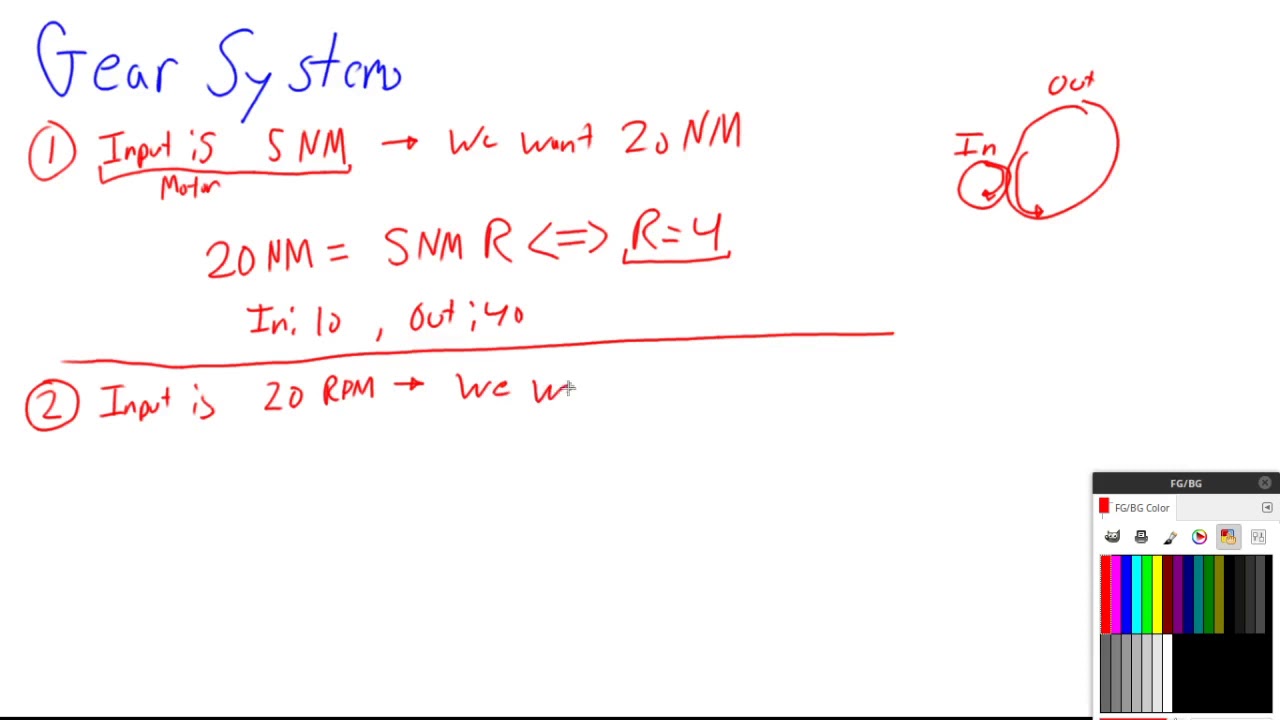 Gear Systems
Out
① Input is 5 NM → We want 20 NM
In
Motor
20 NM = 5 NM R <=> R=4
In: 10 , Out: 40
② Input is 20 RPM → We w
FG/BG
FG/BG Color